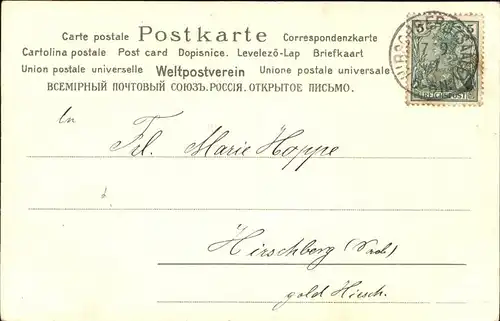 Carte postale Postkarte Correspondenzkarte
Cartolina postale Post card Dopisnice. Levelező-Lap Briefkaart
Union postale universelle Weltpostverein Unione postale universale
ВСЕМІРНЫЙ ПОЧТОВЫЙ СОЮЗЪ. РОССІЯ. ОТКРЫТОЕ ПИСЬМО.
5
REICHSPOST
7 9
In
Frl. Marie Hoppe
Hirschberg
gold Hirsch.